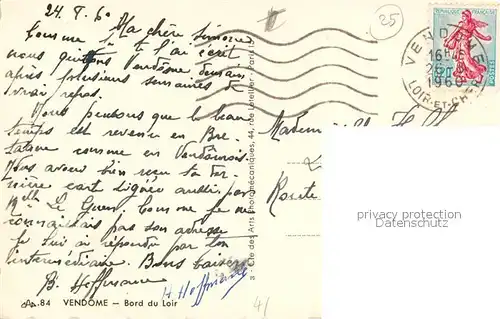 24.8.60
Ma chère Simone
Comme je te l'ai écrit
nous quittons Vendôme demain
après plusieurs semaines de
vrai repos.
Nous pensons que le beau
temps est revenu en Bre
tagne comme en Vendômois.
Nous avons bien reçu ta der
nière carte signée aussi par
Melle Le Guen. Comme je ne
connaissais pas son adresse
je lui ai répondu par ton
intermédiaire. Bons baisers
B. Hoffmann
H Hoffmann
84 VENDOME — Bord du Loir
Cie des Arts Photomécaniques, 44, rue Letellier - Paris 15
25
REPUBLIQUE FRANÇAISE
POSTES
VENDOME
16H
1960
LOIR-ET-CHER
Mademoiselle
Route
privacy protection
Datenschutz
41